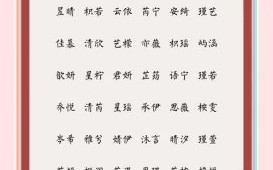 昱晴 枳若 云依 芮宁 安绮 瑾艺
佳慕 清欣 艺檬 亦薇 枳瑶 屿涵
歆妍 星柠 君妍 芷茹 语宁 瑾若
乔悦 清芮 星瑶 承伊 思薇 桉雯
岑希 雅兮 婧伊 泳言 晴汐 瑾萱